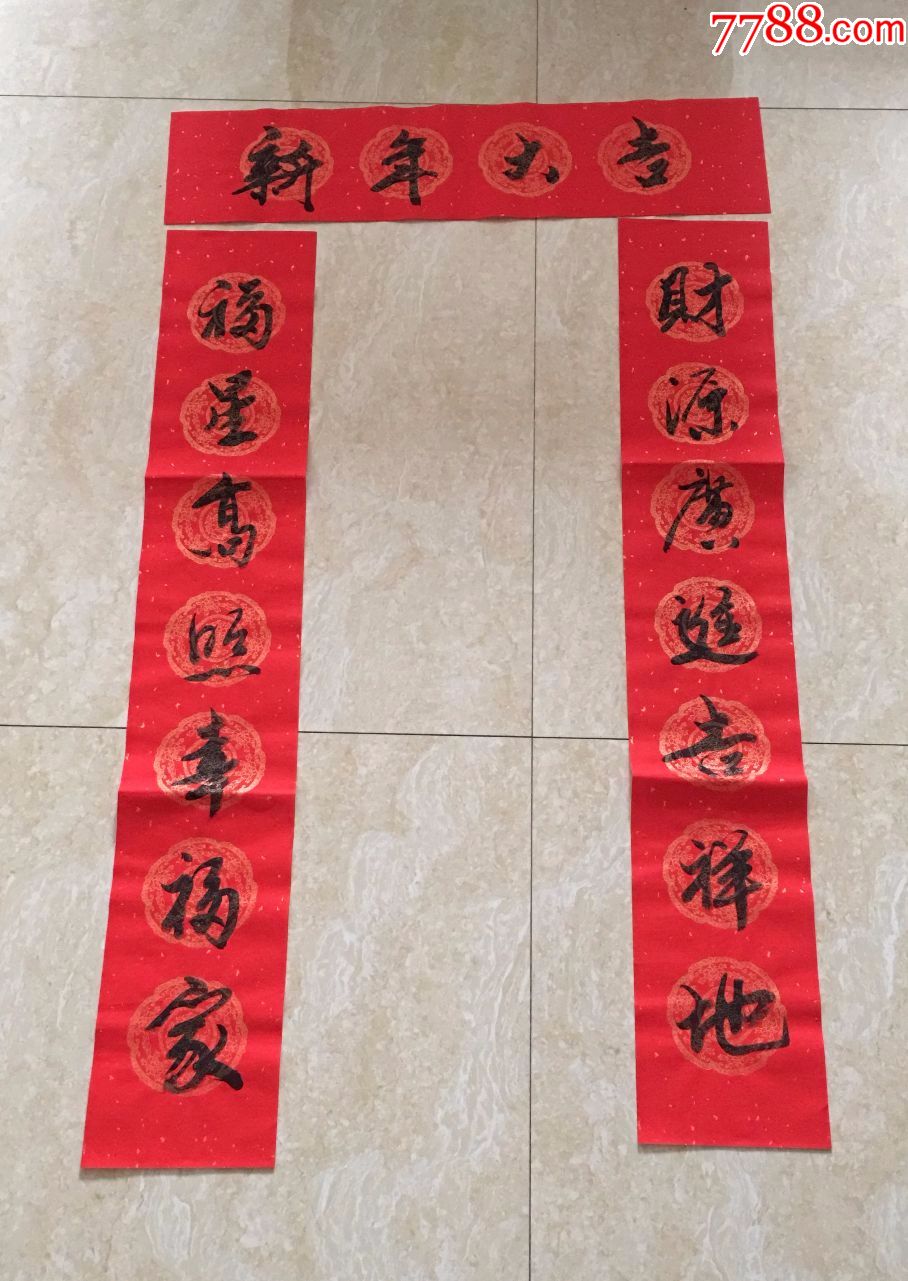 7788.com
新年大吉
福星高照幸福家
財源廣進吉祥地